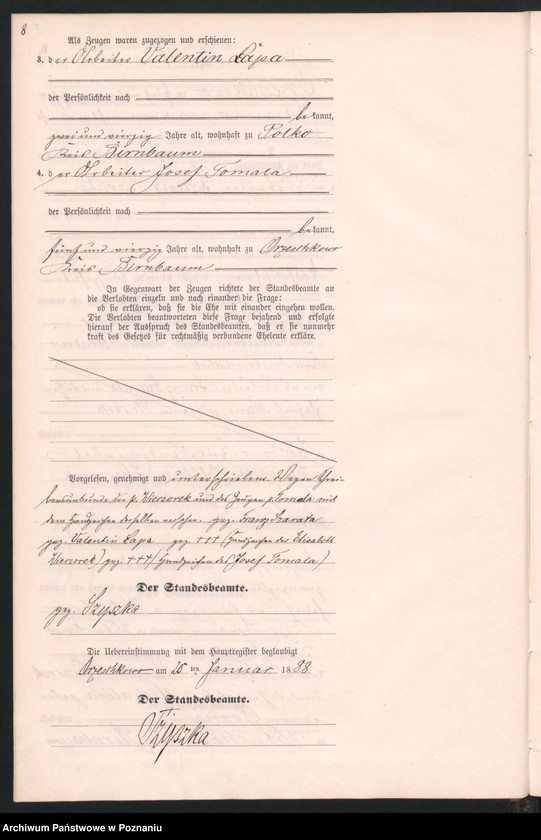 8
Als Zeugen waren zugezogen und erschienen:
3. der Arbeiter Valentin Łapa
der Persönlichkeit nach
bekannt,
zwei und vierzig Jahre alt, wohnhaft zu Polko
Kreis Birnbaum
4. der Arbeiter Josef Tomala
der Persönlichkeit nach
bekannt,
fünf und vierzig Jahre alt, wohnhaft zu Orzeschkowo
Kreis Birnbaum
In Gegenwart der Zeugen richtete der Standesbeamte an
die Verlobten einzeln und nach einander die Frage:
ob sie erklären, daß sie die Ehe mit einander eingehen wollen.
Die Verlobten beantworteten diese Frage bejahend und erfolgte
hierauf der Ausspruch des Standesbeamten, daß er sie nunmehr
kraft des Gesetzes für rechtmäßig verbundene Eheleute erkläre.
Vorgelesen, genehmigt und unterschrieben. Wegen Schrei-
bensunkunde der p. Wieczorek und des Zeugen p. Tomala mit
dem Handzeichen derselben versehen. gez. Franz Szarata
gez. Valentin Łapa gez. +++ (Handzeichen der Elisabeth
Wieczorek) gez. +++ (Handzeichen des Josef Tomala)
Der Standesbeamte.
gez. Szyszka
Die Uebereinstimmung mit dem Hauptregister beglaubigt
Orzeschkowo am 25 ten Januar 1888
Der Standesbeamte.
Szyszka
Archiwum Państwowe w Poznaniu